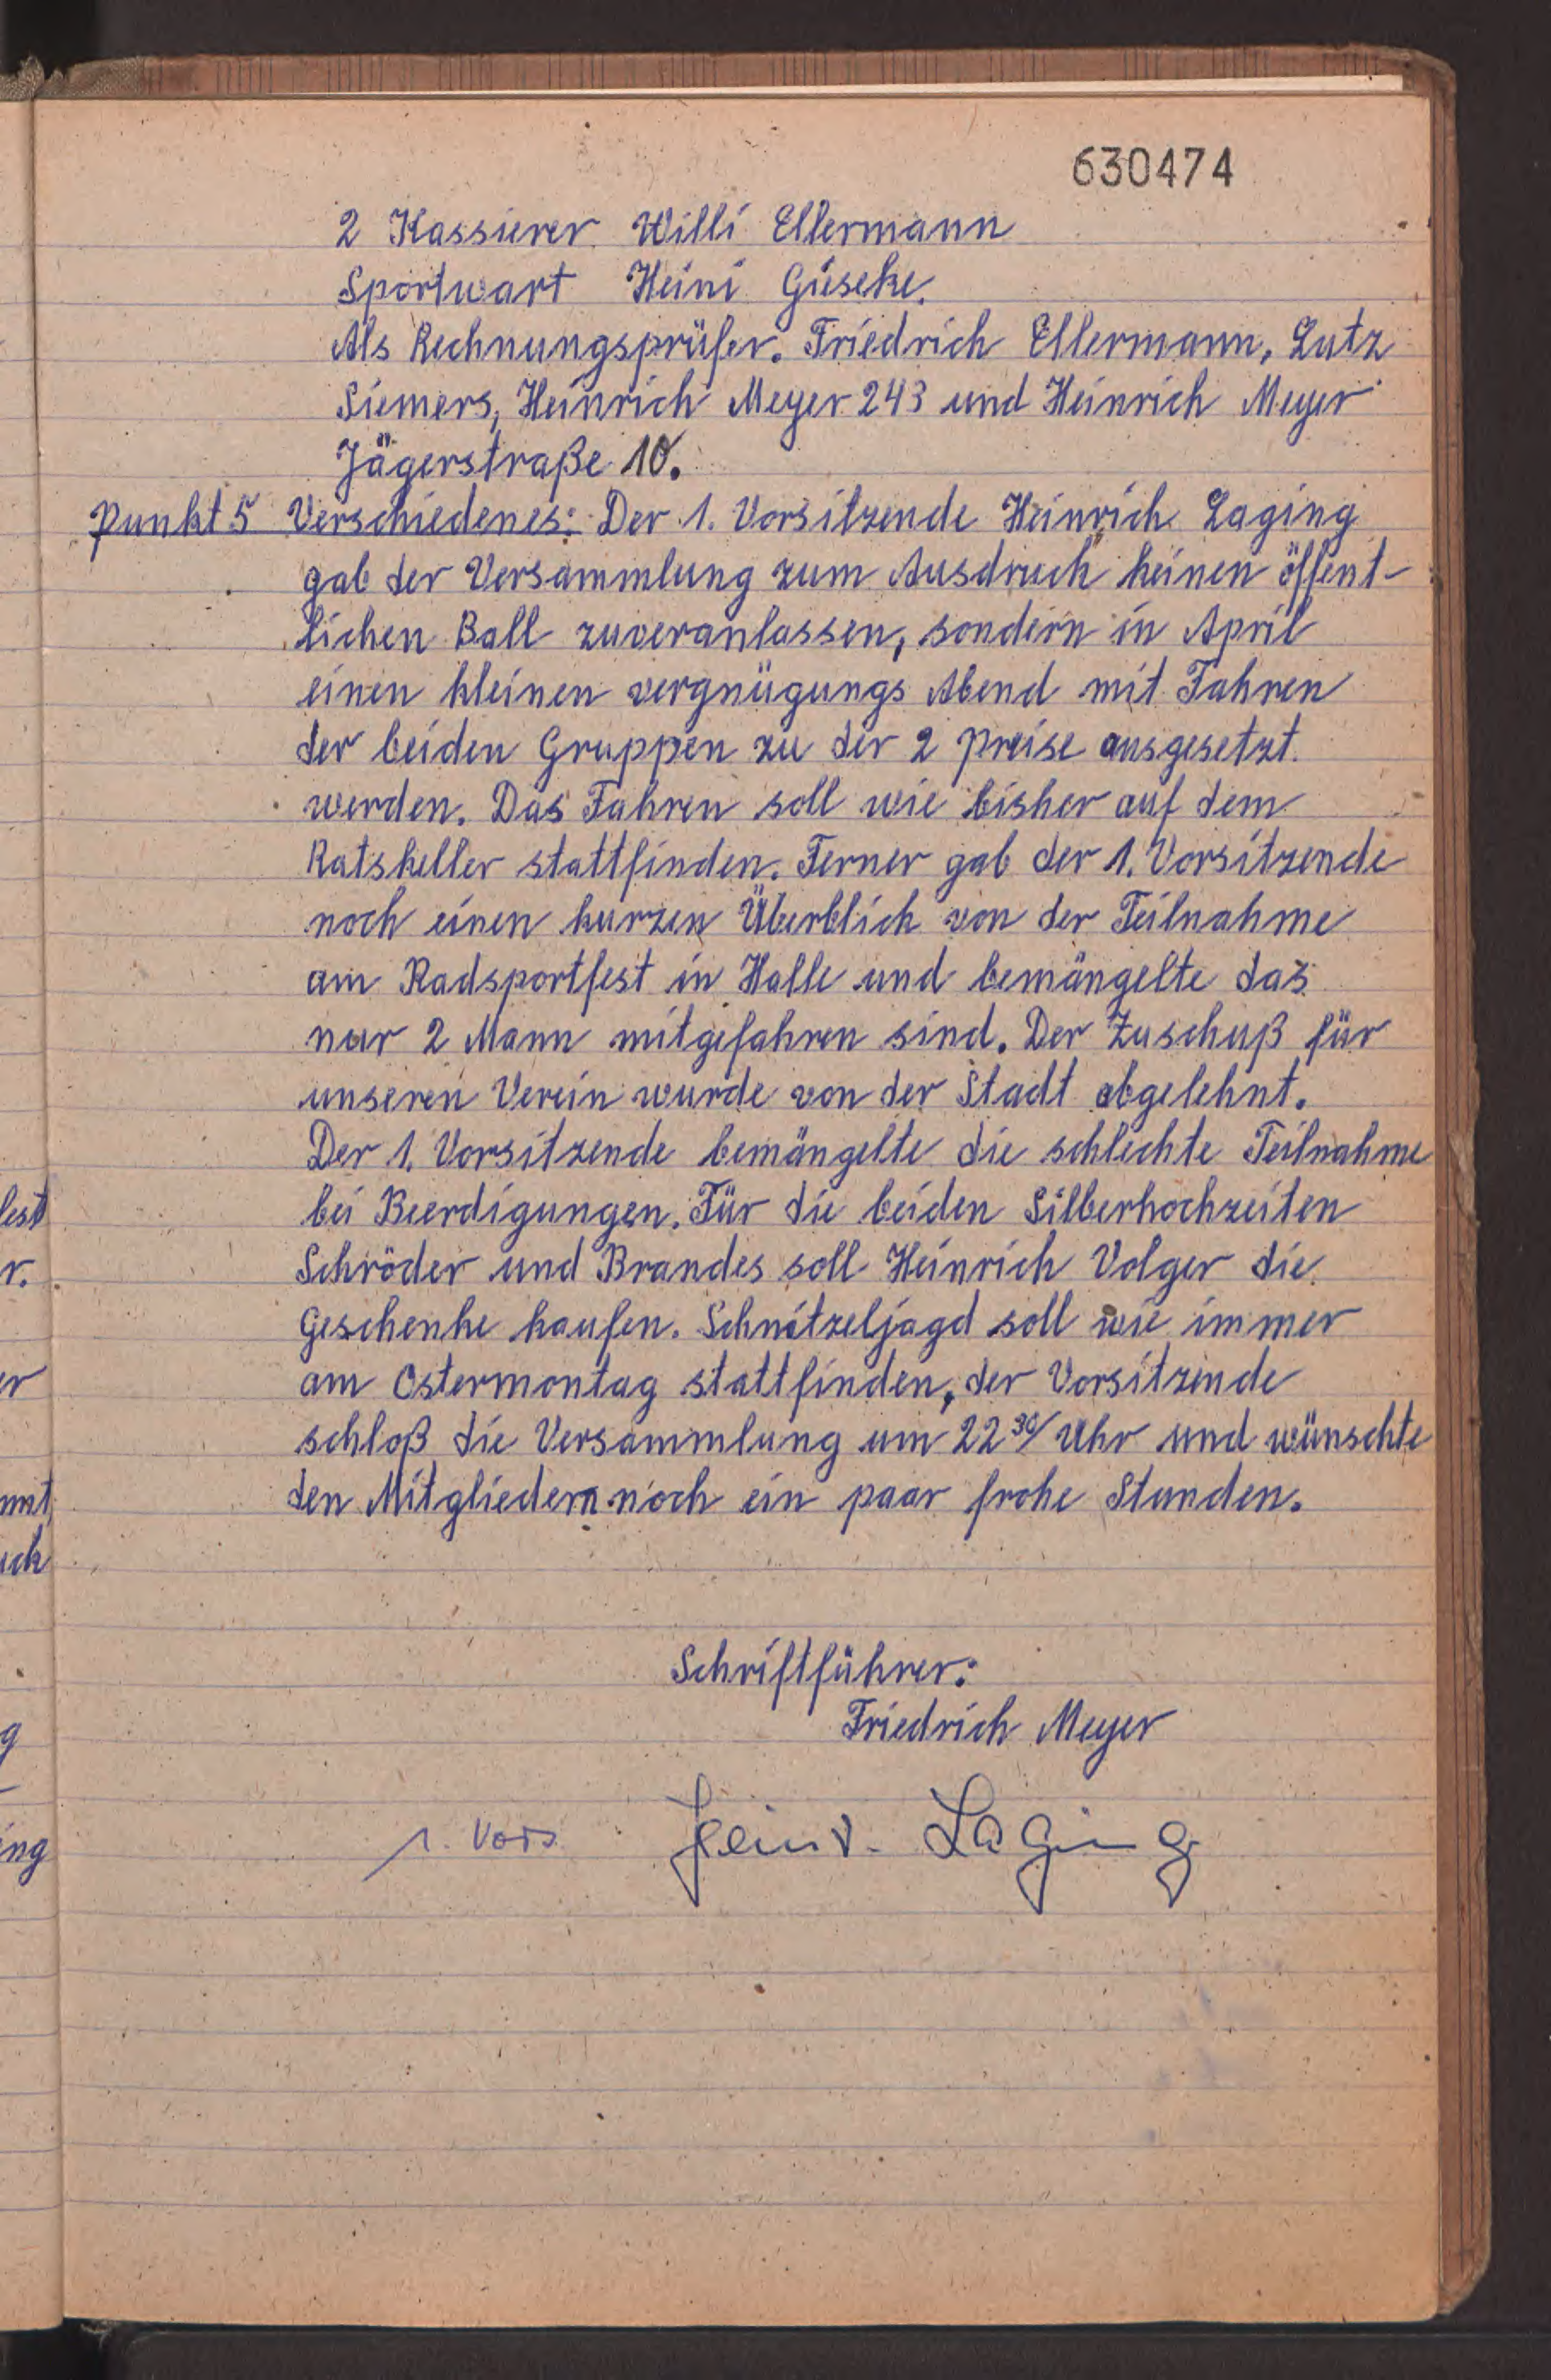 630474
2 Kassierer Willi Ellermann
Sportwart Heini Gieseke.
Als Rechnungsprüfer. Friedrich Ellermann, Lutz
Siemers, Heinrich Meyer 243 und Heinrich Meyer
Jägerstraße 10.
Punkt 5 Verschiedenes: Der 1. Vorsitzende Heinrich Laging
gab der Versammlung zum Ausdruck keinen öffent-
lichen Ball zuveranlassen, sondern in April
einen kleinen vergnügungs Abend mit Fahren
der beiden Gruppen zu der 2 Preise ausgesetzt
werden. Das Fahren soll wie bisher auf dem
Ratskeller stattfinden. Ferner gab der 1. Vorsitzende
noch einen kurzen Überblick von der Teilnahme
am Radsportfest in Halle und bemängelte das
nur 2 Mann mitgefahren sind. Der Zuschuß für
unseren Verein wurde von der Stadt abgelehnt.
Der 1. Vorsitzende bemängelte die schlechte Teilnahme
bei Beerdigungen. Für die beiden Silberhochzeiten
Schröder und Brandes soll Heinrich Volger die
Geschenke kaufen. Schnitzeljagd soll wie immer
am Ostermontag stattfinden, der Vorsitzende
schloß die Versammlung um 22 30/ Uhr und wünschte
den Mitgliedern noch ein paar frohe Stunden.
Schriftführer:
Friedrich Meyer
1. Vors. Heinr. Laging